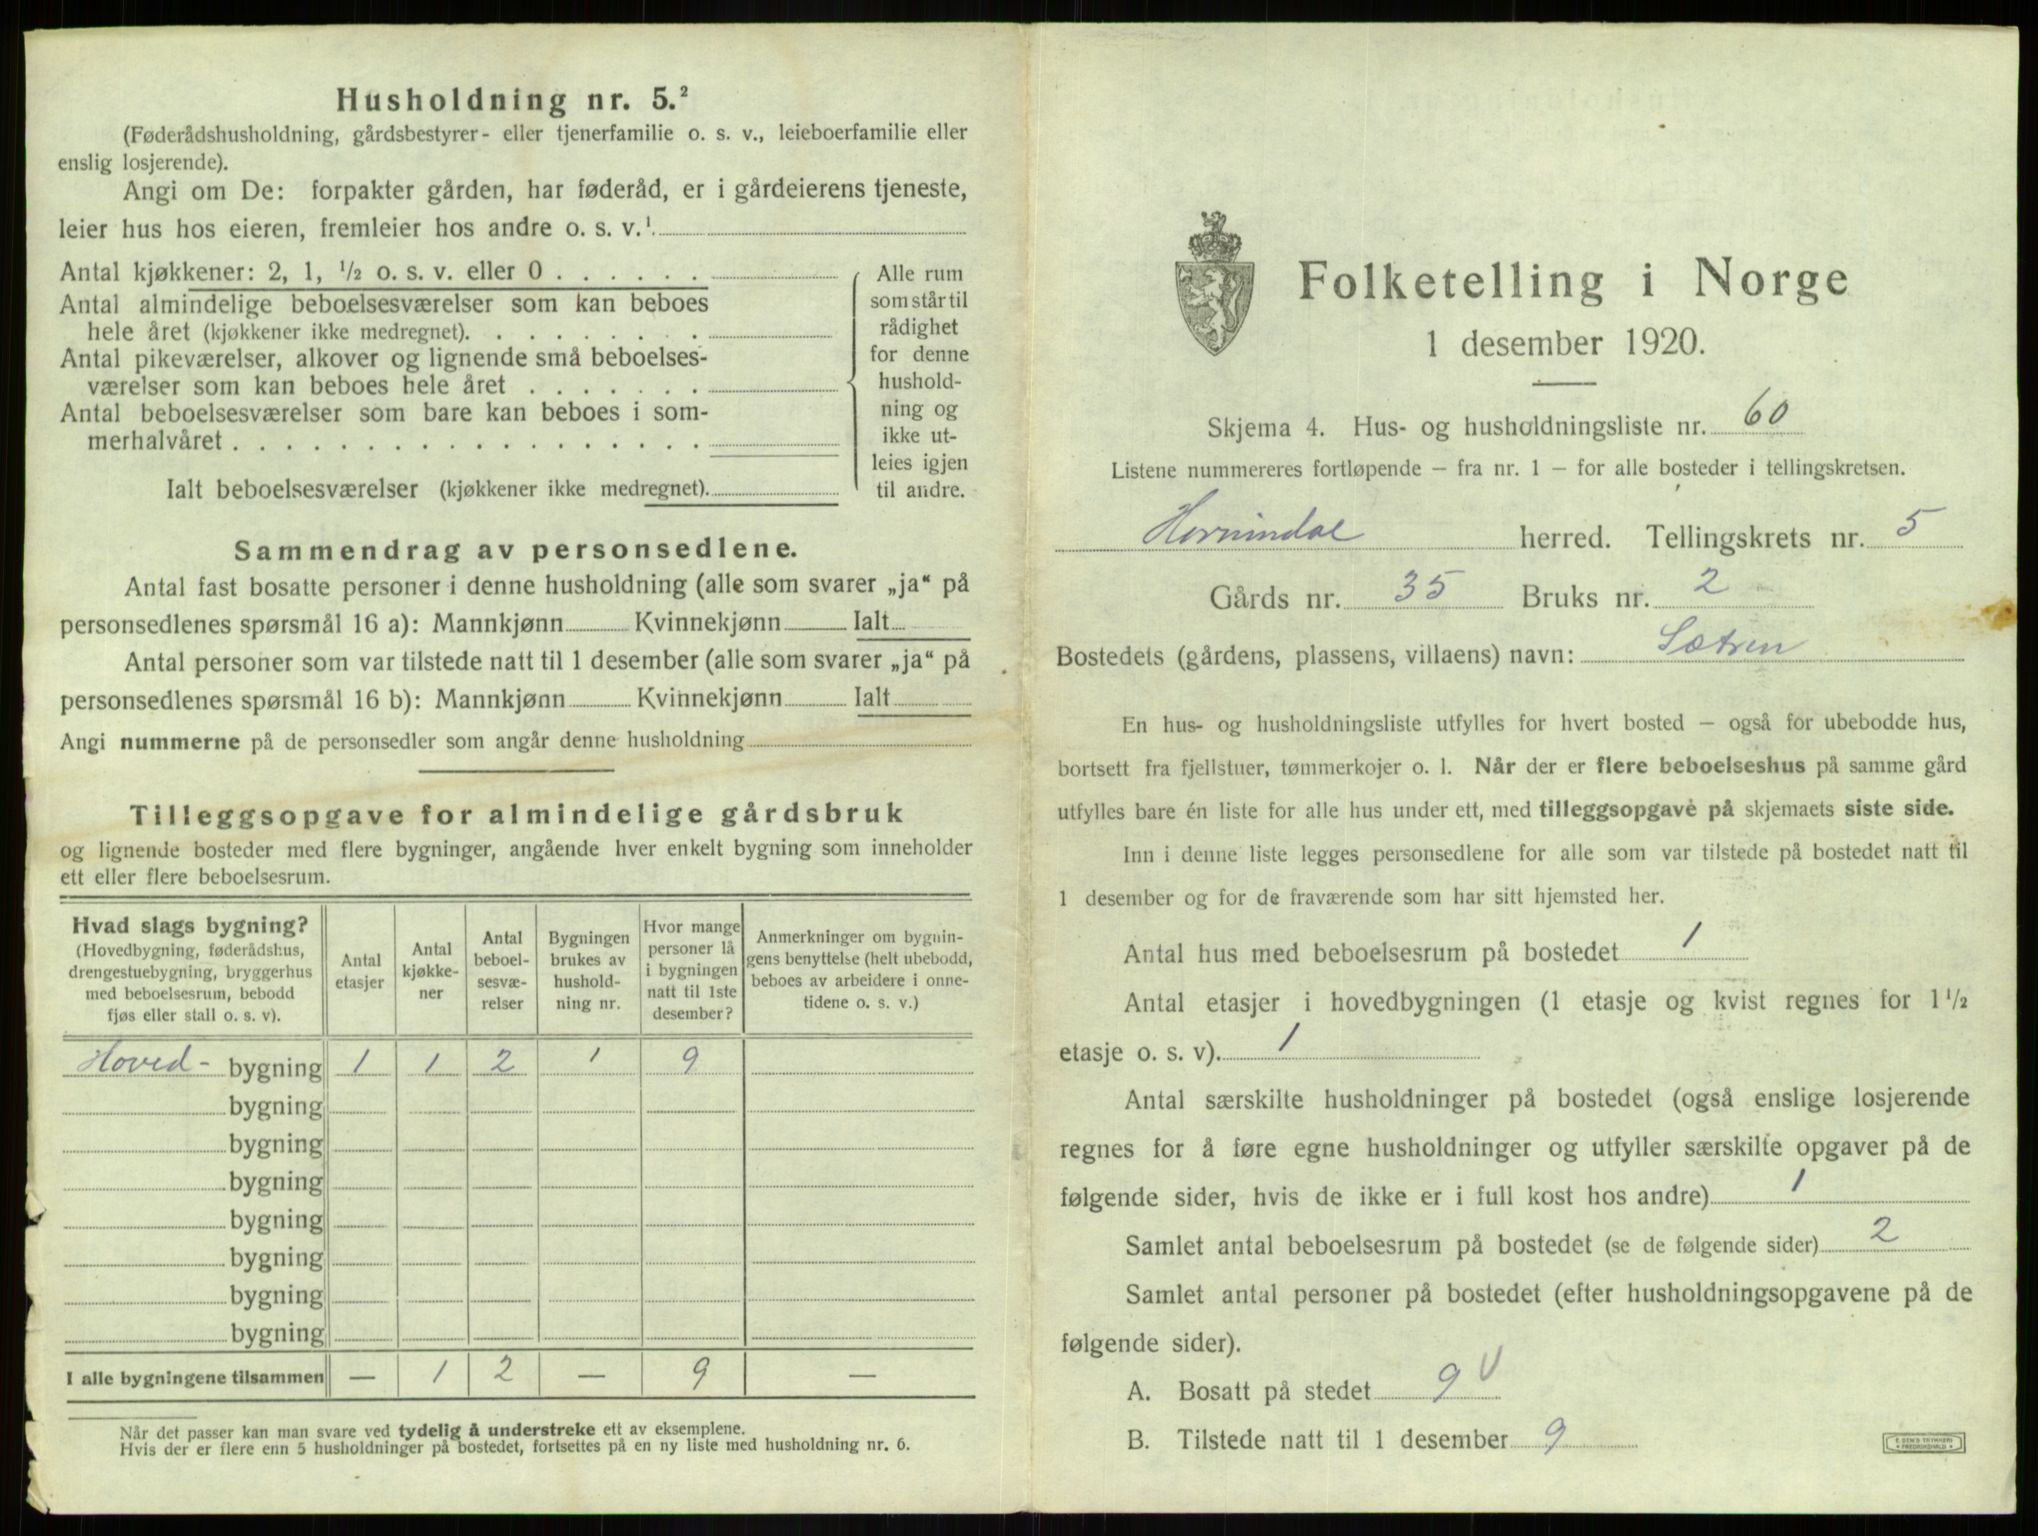 Husholdning nr. 5.²
(Føderådshusholdning, gårdsbestyrer- eller tjenerfamilie o. s. v., leieboerfamilie eller
enslig losjerende).
Angi om De: forpakter gården, har føderåd, er i gårdeierens tjeneste,
leier hus hos eieren, fremleier hos andre o. s. v.¹
Antal kjøkkener: 2, 1, ½ o. s. v. eller 0 . . . . . .
Antal almindelige beboelsesværelser som kan beboes
hele året (kjøkkener ikke medregnet). . . . . . . . .
Antal pikeværelser, alkover og lignende små beboelses-
værelser som kan beboes hele året . . . . . . .
Antal beboelsesværelser som bare kan beboes i som-
merhalvåret . . . . . . . . . . . . . . . . . .
Ialt beboelsesværelser (kjøkkener ikke medregnet).
Alle rum
som står til
rådighet
for denne
hushold-
ning og
ikke ut-
leies igjen
til andre.
Sammendrag av personsedlene.
Antal fast bosatte personer i denne husholdning (alle som svarer „ja“ på
personsedlenes spørsmål 16 a): Mannkjønn Kvinnekjønn Ialt
Antal personer som var tilstede natt til 1 desember (alle som svarer „ja“ på
personsedlenes spørsmål 16 b): Mannkjønn Kvinnekjønn Ialt
Angi nummerne på de personsedler som angår denne husholdning
Tilleggsopgave for almindelige gårdsbruk
og lignende bosteder med flere bygninger, angående hver enkelt bygning som inneholder
ett eller flere beboelsesrum.
Hvad slags bygning?
(Hovedbygning, føderådshus,
drengestuebygning, bryggerhus
med beboelsesrum, bebodd
fjøs eller stall o. s. v).
Antal
etasjer
Antal
kjøkke-
ner
Antal
beboel-
sesvæ-
relser
Bygningen
brukes av
hushold-
ning nr.
Hvor mange
personer lå
i bygningen
natt til 1ste
desember?
Anmerkninger om bygnin-
gens benyttelse (helt ubebodd,
beboes av arbeidere i onne-
tidene o. s. v.)
Hoved- bygning 1 1 2 1 9
bygning
bygning
bygning
bygning
bygning
bygning
bygning
I alle bygningene tilsammen — 1 2 — 9 —
Når det passer kan man svare ved tydelig å understreke ett av eksemplene.
Hvis der er flere enn 5 husholdninger på bostedet, fortsettes på en ny liste med husholdning nr. 6.
Folketelling i Norge
1 desember 1920.
Skjema 4. Hus- og husholdningsliste nr. 60
Listene nummereres fortløpende – fra nr. 1 – for alle bosteder i tellingskretsen.
Hornindal herred. Tellingskrets nr. 5
Gårds nr. 35 Bruks nr. 2
Bostedets (gårdens, plassens, villaens) navn: Sætren
En hus- og husholdningsliste utfylles for hvert bosted – også for ubebodde hus,
bortsett fra fjellstuer, tømmerkojer o. l. Når der er flere beboelseshus på samme gård
utfylles bare én liste for alle hus under ett, med tilleggsopgave på skjemaets siste side.
Inn i denne liste legges personsedlene for alle som var tilstede på bostedet natt til
1 desember og for de fraværende som har sitt hjemsted her.
Antal hus med beboelsesrum på bostedet 1
Antal etasjer i hovedbygningen (1 etasje og kvist regnes for 1½
etasje o. s. v). 1
Antal særskilte husholdninger på bostedet (også enslige losjerende
regnes for å føre egne husholdninger og utfyller særskilte opgaver på de
følgende sider, hvis de ikke er i full kost hos andre) 1
Samlet antal beboelsesrum på bostedet (se de følgende sider) 2
Samlet antal personer på bostedet (efter husholdningsopgavene på de
følgende sider).
A. Bosatt på stedet 9 V
B. Tilstede natt til 1 desember 9
E. SEM'S TRYKKERI
FREDRIKSHALD